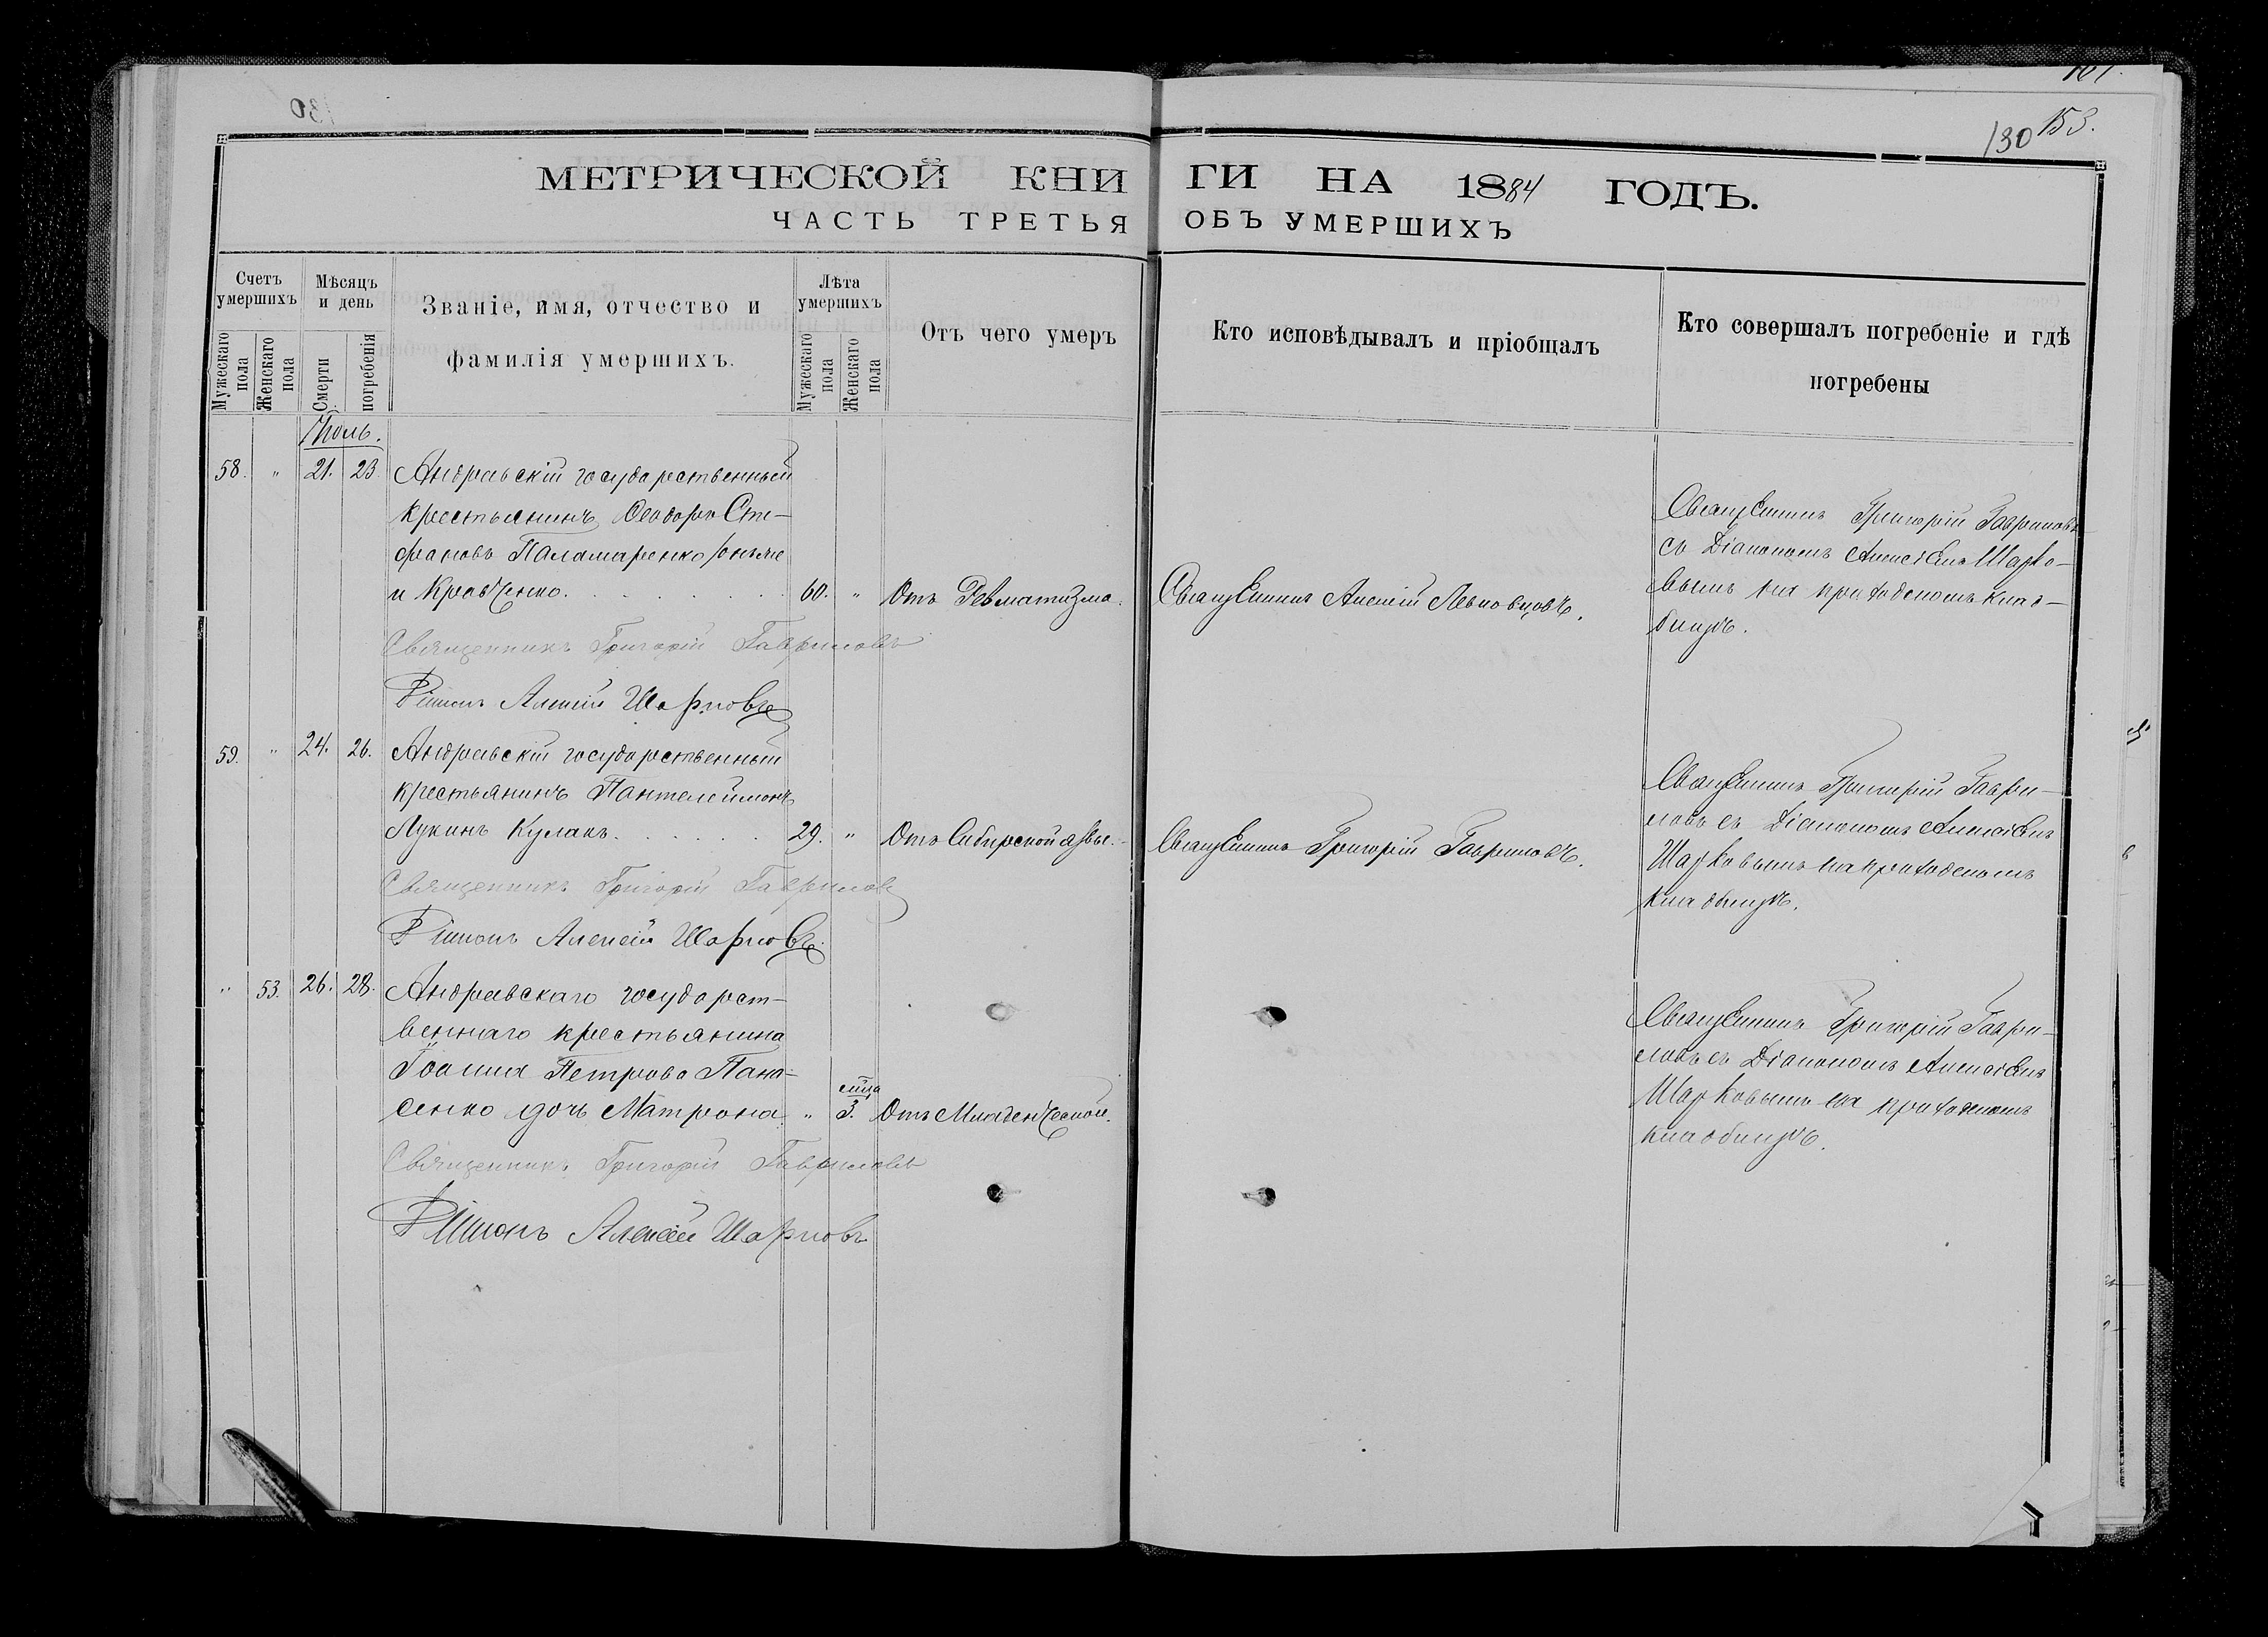 130 153.
МЕТРИЧЕСКОЙ КНИГИ НА 1884 ГОДЪ.
ЧАСТЬ ТРЕТЬЯ ОБЪ УМЕРШИХЪ
Счетъ умершихъ
Мужескаго пола
Женскаго пола
Мѣсяцъ и день
Смерти
погребенія
Званіе, имя, отчество и
фамилія умершихъ.
Лѣта умершихъ
Мужескаго пола
Женскаго пола
Отъ чего умеръ
Кто исповѣдывалъ и пріобщалъ
Кто совершалъ погребеніе и гдѣ
погребены
Іюль.
58. " 21. 23. Андреевскій государственный
крестьянинъ Ѳеодоръ Сте-
фановъ Паламаренко
и Кравченко. 60. " Отъ Ревматизма. Священникъ Алексій Левковцовъ.
Священникъ Григорій Гавриловъ
съ Діакономъ Алексіемъ Шарко-
вымъ на приходскомъ клад-
бищѣ.
Священникъ Григорій Гавриловъ
Діаконъ Алексій Шарковъ
59. " 24. 26. Андреевскій государственный
крестьянинъ Пантелеимонъ
Лукинъ Кулакъ. 29. " Отъ Сибирской язвы. Священникъ Григорій Гавриловъ.
Священникъ Григорій Гаври-
ловъ съ Діакономъ Алексіемъ
Шарковымъ на приходскомъ
кладбищѣ.
Священникъ Григорій Гавриловъ
Діаконъ Алексій Шарковъ
" 53. 26. 28. Андреевскаго государст-
веннаго крестьянина
Іоанна Петрова Пана-
сенко дочь Матрона " 3. мца Отъ Младенческой.
Священникъ Григорій Гаври-
ловъ съ Діакономъ Алексіемъ
Шарковымъ на приходскомъ
кладбищѣ.
Священникъ Григорій Гавриловъ
Діаконъ Алексій Шарковъ